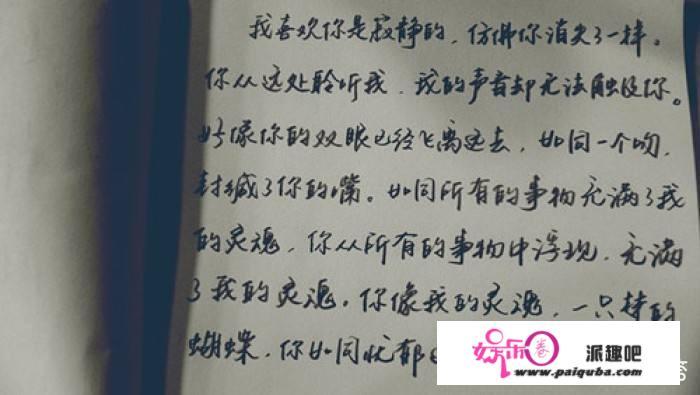 我喜欢你是寂静的，仿佛你消失了一样。
你从远处聆听我，我的声音却无法触及你。
好像你的双眼已经飞离远去，如同一个吻，
封缄了你的嘴。如同所有的事物充满了我
的灵魂，你从所有的事物中浮现，充满
了我的灵魂。你像我的灵魂，一只梦的
蝴蝶，你如同忧郁
娱乐圈 派趣吧
www.paiquba.com